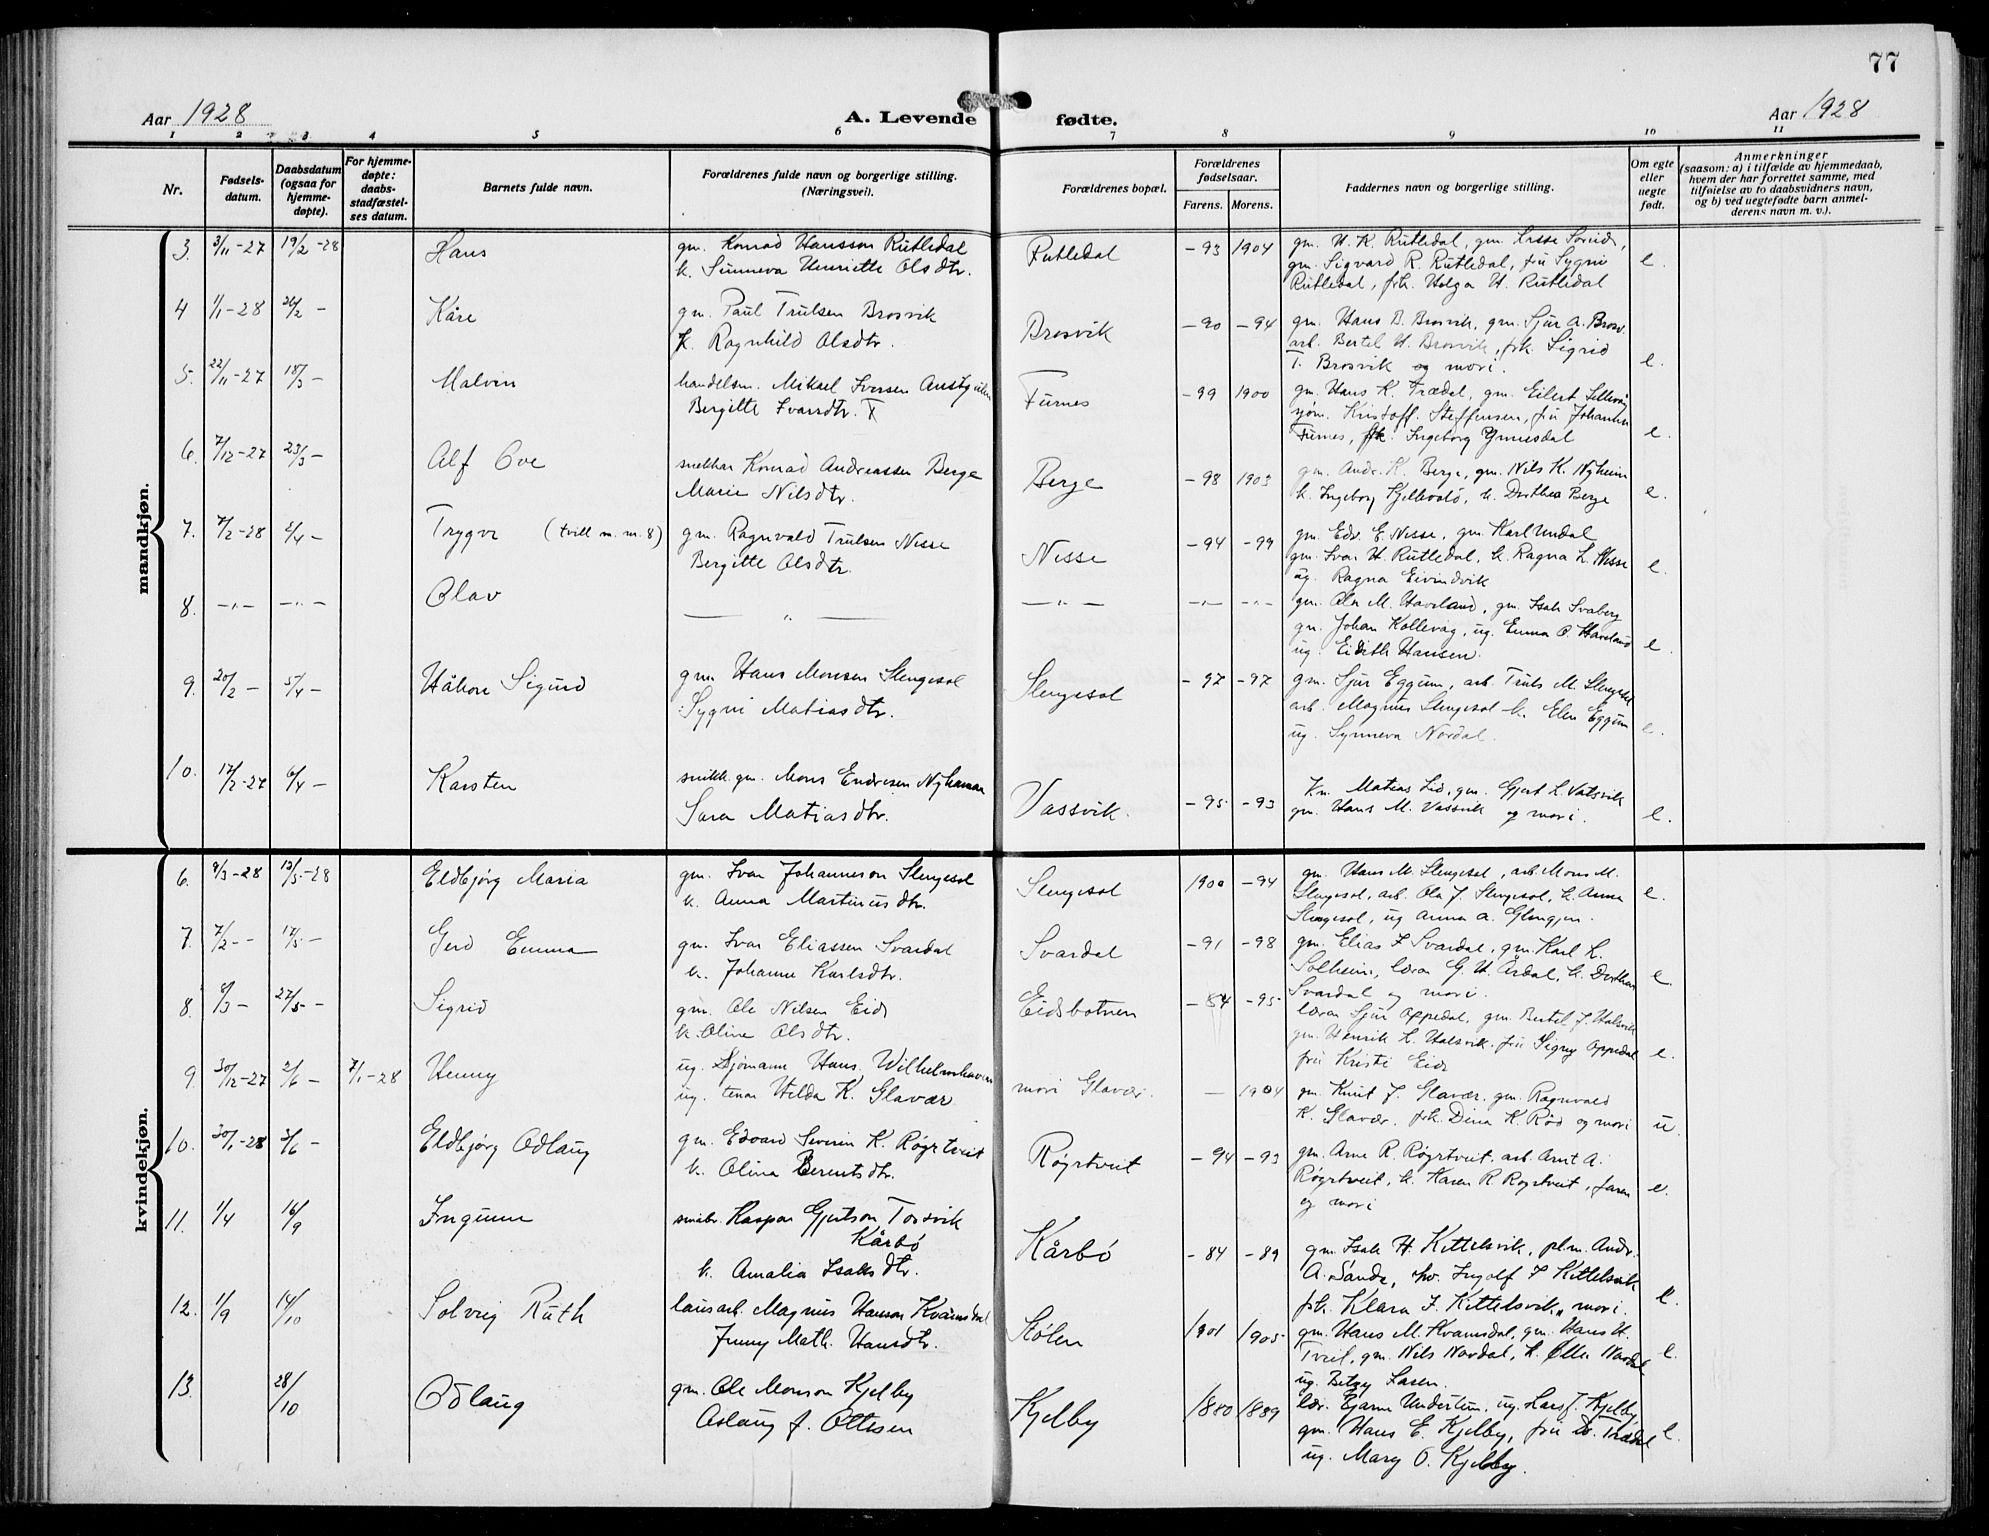 77
Aar 1928
A. Levende fødte.
Aar 1928
1 2 3 4 5 6 7 8 9 10 11
Nr.
Fødsels-
datum.
Daabsdatum
(ogsaa for
hjemme-
døpte).
For hjemme-
døpte:
daabs-
stadfæstel-
ses datum.
Barnets fulde navn.
Forældrenes fulde navn og borgerlige stilling.
(Næringsvei).
Forældrenes bopæl.
Forældrenes
fødselsaar.
Farens. Morens.
Faddernes navn og borgerlige stilling.
Om egte
eller
uegte
født.
Anmerkninger
(saasom: a) i tilfælde av hjemmedaab,
hvem der har forrettet samme, med
tilføielse av to daabsvidners navn,
og b) ved uegtefødte barn anmel-
derens navn m. v.).
mandkjøn.
3. 3/11-27 19/2-28 Hans
gm. Konrad Hansson Rutledal
k. Sunneva Henriette Olsdtr.
Rutledal -93 1904
gm. H. K. Rutledal, gm.
gm. Sigvard R. Rutledal, fru Sygni
Rutledal, frk. Helga H. Rutledal
e.
4 1/1-28 26/2 - Kåre
gm. Paul Trulsen Brosvik
k. Ragnhild Olsdtr.
Brosvik -90 -94
gm. Hans B. Brosvik, gm. Sjur A. Brosv.
arb. Bertel H. Brosvik, frk. Sigrid
T. Brosvik og mori.
e.
5. 22/11-27 18/3 - Malvin
handelsm. Mikael Iversen
Bergitte Ivarsdtr.
Furnes -99 1900
gm. Hans K. Trædal, gm. Eilert
sjøm. Kristoff. Steffensen, fru Johanna
Furnes, frk. Ingeborg Ynnesdal
e.
6. 7/12-27 23/3 - Alf Ove
snekker Konrad Andreassen Berge
Marie Nilsdtr.
Berge -98 1903
gm. Andr. K. Berge, gm. Nils K. Nyheim
k. Ingeborg Kjellevold, k. Dorthea Berge
e.
7. 7/2-28 2/4 - Trygve (tvill m. nr. 8)
gm. Ragnvald Trulsen Nesse
Bergitte Olsdtr.
Nesse -94 -99
gm. Edv. E. Nesse, gm. Karl Undal
gm. Ivar H. Rutledal, k. Ragna L. Nesse
ug. Ragna Eivindvik
e.
8. -"- -"- Olav
— " —
— " — -"- -"-
gm. Ola M. Haveland, gm. Isak Svaberg
gm. Johan Kollevåg, ug. Emma O. Haveland
ug. Eidith Hansen.
e.
9. 20/2 - 5/4 - Håkon Sigurd
gm Hans Monsen Slengesol
Sygni Matiasdtr.
Slengesol -97 -97
gm. Sjur Eggum, arb. Truls M. Slengesol
arb. Magnus Slengesol k. Elen Eggum
ug. Synneva Nordal.
e.
10. 17/2-27 6/4 - Karsten
snikk. gm. Mons Endresen Nyhammer
Sara Matiasdtr.
Vassvik. -95 -93
Km. Matias Lid, gm. Gjert L. Vatsvik
gm. Hans M. Vassvik og mori.
e.
kvindekjøn.
6. 9/3-28 13/5-28 Eldbjørg Maria
gm. Ivar Johanneson Slengesol
k. Anna Martinusdtr.
Slengesol 1900 -94
gm. Hans M. Slengesol, arb. Mons M.
Slengesol, arb. Ola J. Slengesol, k. Anna
Slengesol, ug Anna A. Glengjen.
e.
7. 7/2 - - 17/5 - Gerd Emma
gm. Ivar Eliassen Svardal
k. Johanne Karlsdtr.
Svardal -91 -98
gm. Elias I Svardal, gm. Karl L.
Solheim, lærer G. H. Årdal, k. Dorthea
Svardal og mori.
e.
8. 8/3 - 27/5 - Sigrid
gm. Ole Nilsen Eide
k. Oline Olsdtr.
Eidsbotnen -84 -95
lærer Sjur Oppedal, gm. Bertel J. Halsvik
gm. Henrik L. Halsvik, fru Signy Oppedal
fru Kristi Eide
e.
9. 30/12-27 2/6 - 7/1-28 Henny
ug. Sjømann Hans Wilhelmshaven
ug. tenar Helda K. Glavær
mori Glavær. — 1904
gm. Knut J. Glavær, gm. Ragnvald
K. Glavær, frk. Dina K. Rød og mori
u.
10. 30/1-28 3/6 - Eldbjørg Odlaug
gm. Edvard Severin K. Røyrtveit
k. Olina Berentsdtr.
Røyrtveit -94 -93
gm. Arne R. Røyrtveit, arb. Arnt A.
Røyrtveit, k. Karen R. Røyrtveit, faren
og mori
e.
11. 1/4 16/9 Ingunn
småbr. Kaspar Gjertson Torsvik
Kårbø
k. Amalia Isaksdtr.
Kårbø -84 -89
gm. Isak H. Kittelsvik, pl.m. Andr.
A. Sande, Ingolf I Kittelsvik
frk. Klara I. Kittelsvik, mori.
e.
12. 1/9 14/10 Solveig Ruth
lausarb. Magnus Hanson Kvamsdal
Jenny Math. Hansdtr.
Stølen 1901 1905
gm. Hans M. Kvamsdal, gm. Hans H.
Tveit, gm. Nils Nordal, k. Nordal
ug. Betzy Lasen.
e.
13. 28/10 Odlaug
gm. Ole Monson Kjelby
Aslaug f. Ottesen
Kjelby 1880 1889
lær. Bjarne Undertun, ug. Lars J. Kjelby
gm. Hans E. Kjelby, fru Trædal
ug. Mary O. Kjelby.
e.